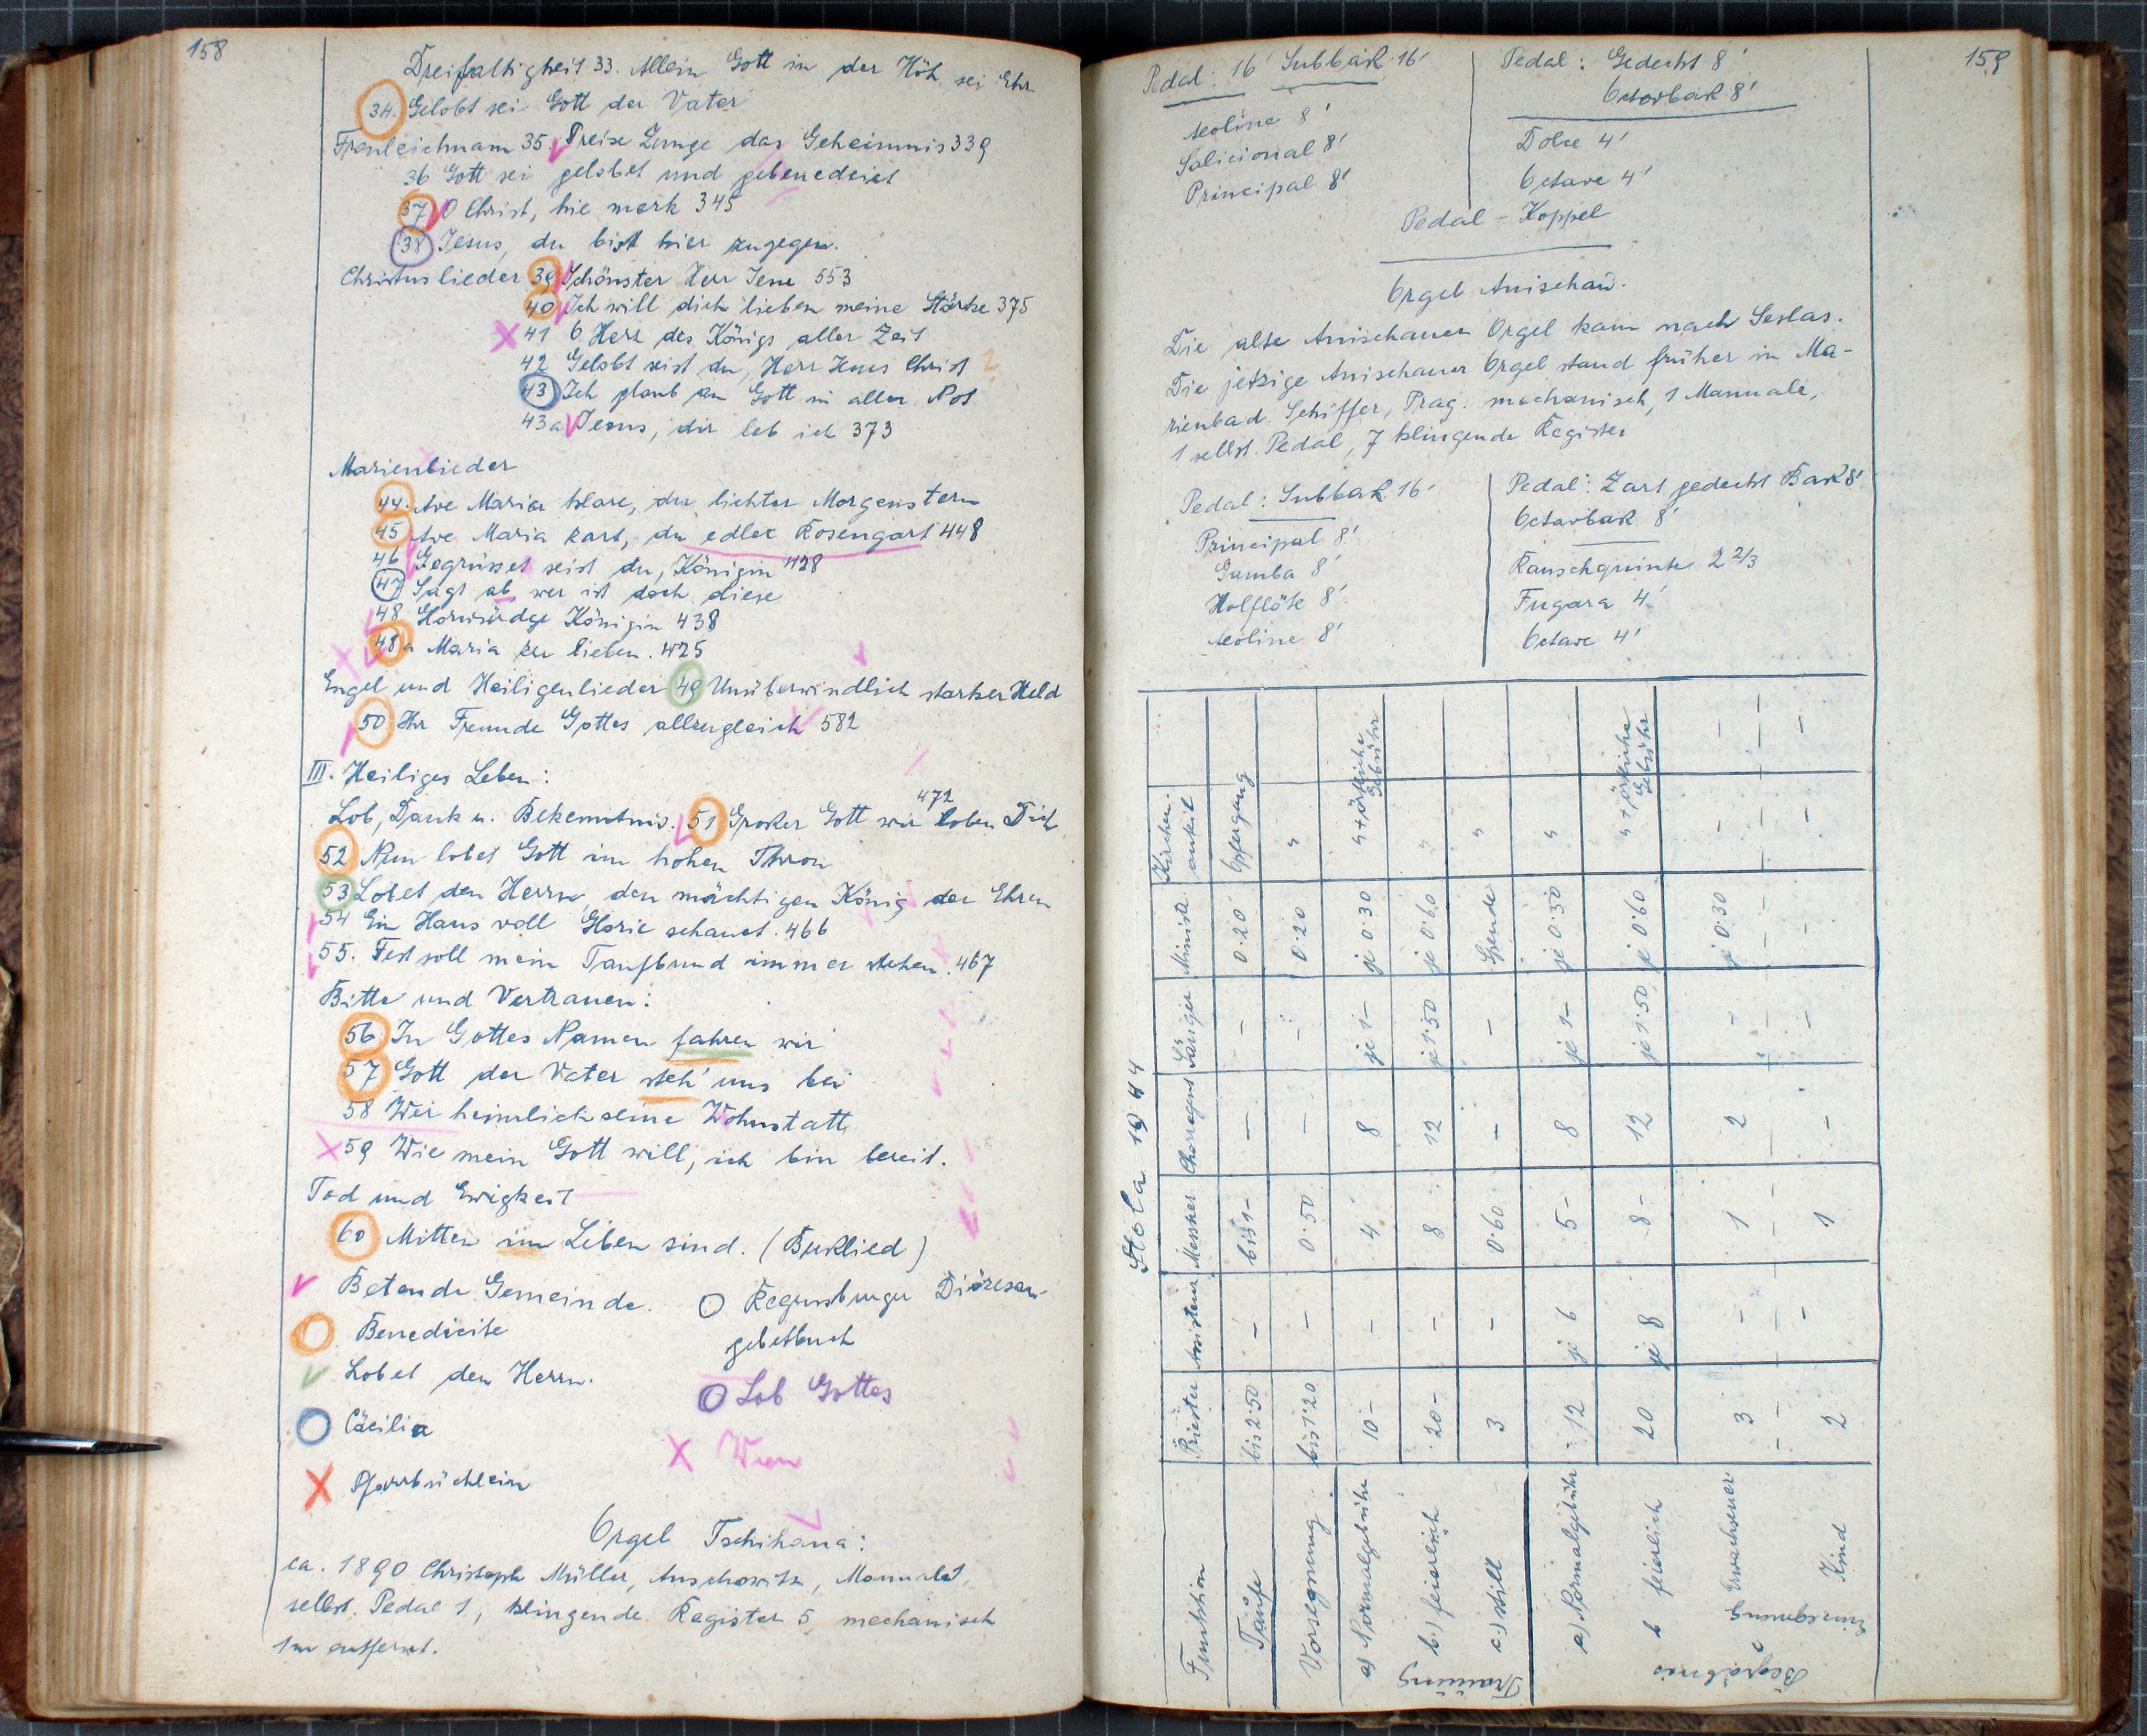 158
Dreifaltigkeit 33. Allein Gott in der Höh sei Ehr
34. Gelobt sei Gott der Vater
Fronleichnam 35. Preise Zunge das Geheimnis 339
36 Gott sei gelobet und gebenedeiet
37 O Christ, hie merk 345
38 Jesus, du bist hier zugegen.
Christuslieder 39 Schönster Herr Jesu 553
40 Ich will dich lieben meine Stärke 375
41 O Herz des Königs aller Zeit
42 Gelobt seist du, Herr Jesus Christ ?
43 Ich glaub an Gott in aller Not
43a Jesus, dir leb ich 373
Marienlieder
44. Ave Maria klare, du lichter Morgenstern
45 Ave Maria zart, du edler Rosengart 448
46 Gegrüsset seist du, Königin 428
47 Sagt ab, wer ist doch diese
48 Glorwürdge Königin 438
48a Maria zu lieben. 425
Engel und Heiligenlieder 49 Unüberwindlich starker Held
50 Ihr Freunde Gottes allzugleich 582
III. Heiliges Leben:
Lob, Dank u. Bekenntnis. 51 Großer Gott wir loben Dich 472
52 Nun lobet Gott im hohen Thron
53 Lobet den Herrn, den mächtigen König der Ehren
54 Ein Haus voll Glorie schauet. 466
55. Fest soll mein Taufbund immer stehen. 467
Bitte und Vertrauen:
56 In Gottes Namen fahren wir
57 Gott der Vater steh' uns bei
58 Wer heimlich seine Wohnstatt
59 Wie mein Gott will, ich bin bereit.
Tod und Ewigkeit
60 Mitten im Leben sind. (Bußlied)
Betende Gemeinde.
Regensburger Diözesan-
gebetbuch
Benedicite
Lobet den Herrn.
Lob Gottes
Cäcilia
Wien
Pfarrbüchlein
Orgel Tschihana:
ca. 1890 Christoph Müller, Auschowitz, Manual 1,
selbst. Pedal 1, klingende Register 5, mechanisch
1m entfernt.
159
Pedal: 16' Subbaß 16'
Aeoline 8'
Salicional 8'
Principal 8'
Pedal: Gedeckt 8'
Octavbaß 8'
Dolce 4'
Octave 4'
Pedal-Koppel
Orgel Anischau.
Die alte Anischauer Orgel kam nach Seslas.
Die jetzige Anischauer Orgel stand früher in Ma-
rienbad. Schiffer, Prag. mechanisch, 1 Manuale,
1 selbst. Pedal, 7 klingende Register
Pedal: Subbaß 16'
Principal 8'
Gamba 8'
Holflöte 8'
Aeoline 8'
Pedal: Zart gedeckt Baß 8'
Octavbaß 8'
Rauschquinte 2 2/3
Fugara 4'
Octave 4'
Stola 1944
Funktion Priester Assistenz Messner Chorregent Sänger Ministr. Kirchen-
Taufe bis 2·50 – bis 1– – – 0·20 Opfergang
Vorsegnung bis 1·20 – 0·50 – – 0·20 "
Trauung
a) Normalgebühr 10– – 4 8 je 1– je 0·30 " + örtliche Gebühr
b) feierlich 20– – 8 12 je 1·50 je 0·60 " "
c) still 3 – 0·60 – – Spende "
Begräbnis
a) Normalgebühr 12 je 6 5– 8 je 1– je 0·30 "
b feierlich 20 je 8 8– 12 je 1·50 je 0·60 " + örtliche Gebühr
c
Einsegnung
Erwachsener 3 – 1 2 – je 0·30 – –
Kind 2 – 1 – – – – –